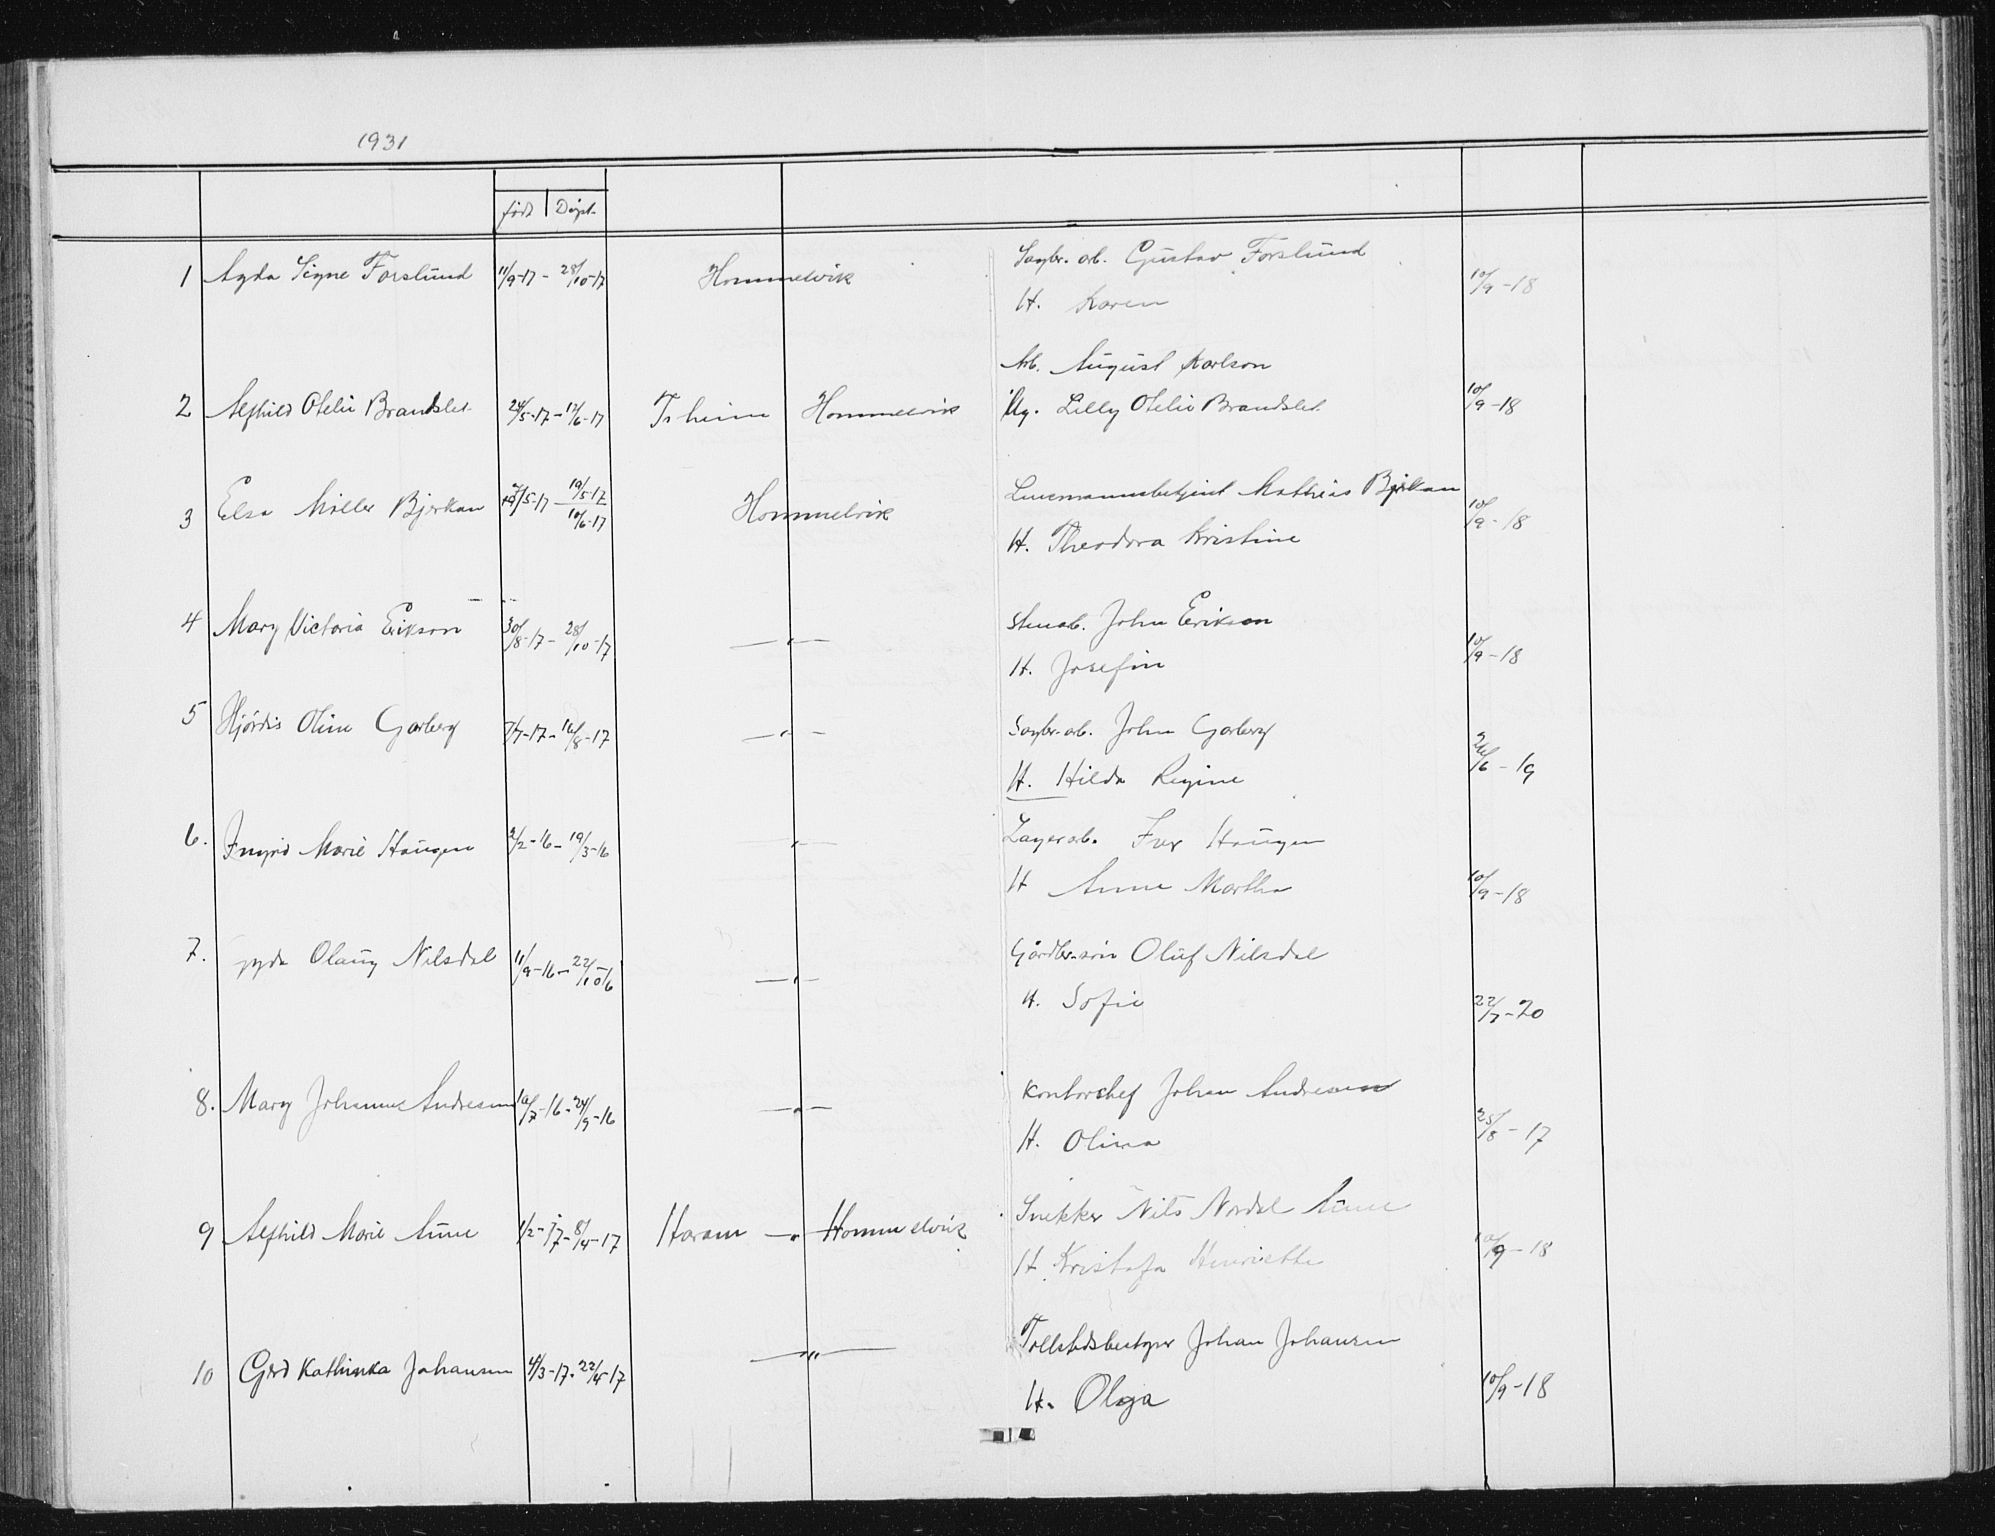 1931
født Døpt.
1 Agda Signe Forslund 11/9-17 - 28/10-17 Hommelvik Sagbr. arb. Gustav Forslund 10/9-18
H. Karen
Arb. August Karlson
2 Alfhild Otelie Brandslet 24/5-17 - 17/6-17 Trheim Hommelvik Ug. Lilly Otelie Brandslet 10/9-18
3 Elsa Møller Bjerkan 5-17 - 19/5-17 10/6-17 Hommelvik Lensmannsbetjent Mathias Bjerkan 10/9-18
H. Theodora Kristine
4 Mary Victoria Erikson 30/8-17 - 28/10-17 — " — Stenarb. John Erikson
H. Josefin 10/9-18
5 Hjørdis Oline Garberg 7/7-17 - 16/8-17 — " — Sagbr. arb. John Garberg
H. Hilda Regine 26/6-19
6. Ingrid Marie Haugen 2/2-16 - 19/3-16 — " — Lagerarb. Iver Haugen
H Anne Martha 10/9-18
7. Olaug Nilsdal 11/9-16 - 22/10-16 — " — Gårdbr.søn Oluf Nilsdal
H. Sofie 22/7-20
8. Mary Johanne Andresen 10/7-16 - 24/9-16 — " — Kontorchef Johan Andresen
H. Olina 25/8-17
9 Alfhild Marie Aune 1/2-17 - 8/4-17 Haram — " — Hommelvik Snekker Nils Nordal Aune
H Kristofa Henriette 10/9-18
10 Gerd Kathinka Johansen 4/3-17 - 22/4-17 — " — Johan Johansen
H. Olga 10/9-18